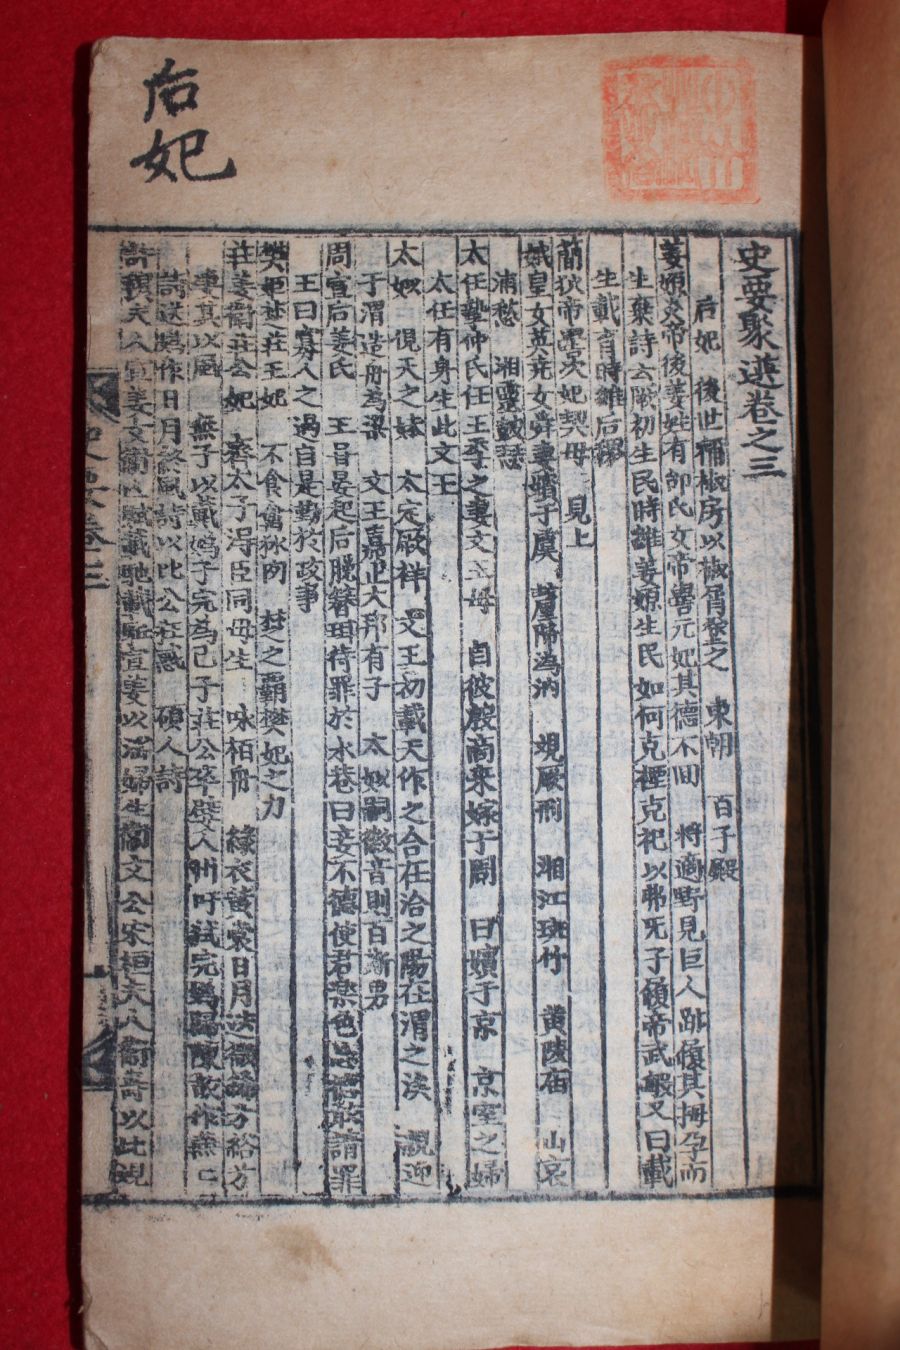 后妃
史要聚選卷之三
后妃 後世稱椒房以椒屑塗之 東朝 百子殿
姜嫄炎帝後姜姓有邰氏女帝嚳元妃其德不回 將適野見巨人跡履其拇孕而
生棄詩云厥初生民時維姜嫄生民如何克禋克祀以弗旡子履帝武敏又曰載
生載育時維后稷
簡狄帝嚳次妃契母 見上
娥皇女英堯女舜妻嬪于虞 釐降潙汭 覌厥刑 湘江斑竹 黃陵庙 山哀
浦愁 湘靈皷瑟
太任摯仲氏任王季之妻文王母 自彼殷商來嫁于周 曰嬪于京 京室之婦
太任有身生此文王
太姒 俔天之妹 太定厥祥 文王初載天作之合在洽之陽在渭之涘 親迎
于渭造舟為梁 文王嘉止大邦有子 太姒嗣徽音則百斯男
周宣后姜氏 王甞晏起后脫簪珥待罪於永巷曰妾不德使君樂色忘德敢請罪
王曰寡人之過自是勤於政事
樊姬楚莊王妃 不食禽獸肉 楚之霸樊妃之力
莊姜衛莊公妃 齊太子淂臣同母生 咏柏舟 綠衣黃裳日月
妻其以風 無子以戴嬀子完為己子莊公卒嬖人州吁弑完
詩送 作日月終風詩以比公狂惑 碩人詩
許穆夫人宣姜女 賦載馳 宣姜以 婦生衛文公宋桓夫人 壽以此覌
史要卷三